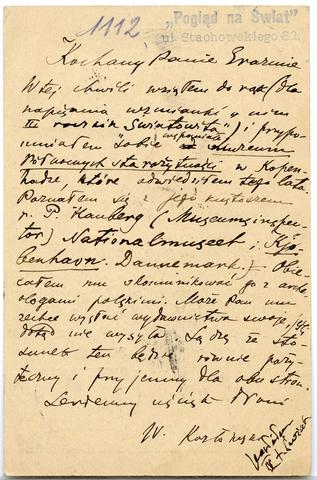 1112
"Pogląd na Świat"
ul. Stachowskiego 82.
Kochany Panie Erazmie
W tej chwili wziąłem do rąk (dla
napisania wzmianki o nim
III rocznik Światowita) i przypo-
mniałem sobie wspaniałe muzeum
Północnych starożytności w Kopen-
hadze, które odwiedziłem tego lata.
Poznałem się z jego kustoszem
p. P. Hauberg (Museumsinspec-
tör) Nationalmuseet i Kjö-
benhavn. Dannemark.) Obie-
całem mu skomunikować go z arche-
ologami polskimi. Może Pan mu
zechce wysłać wydawnictwa swoje,
dotąd nie wysyła. Sądzę że sto-
sunek ten będzie równie poży-
teczny i przyjemny dla obu stron.
Serdeczny uścisk dłoni
W.